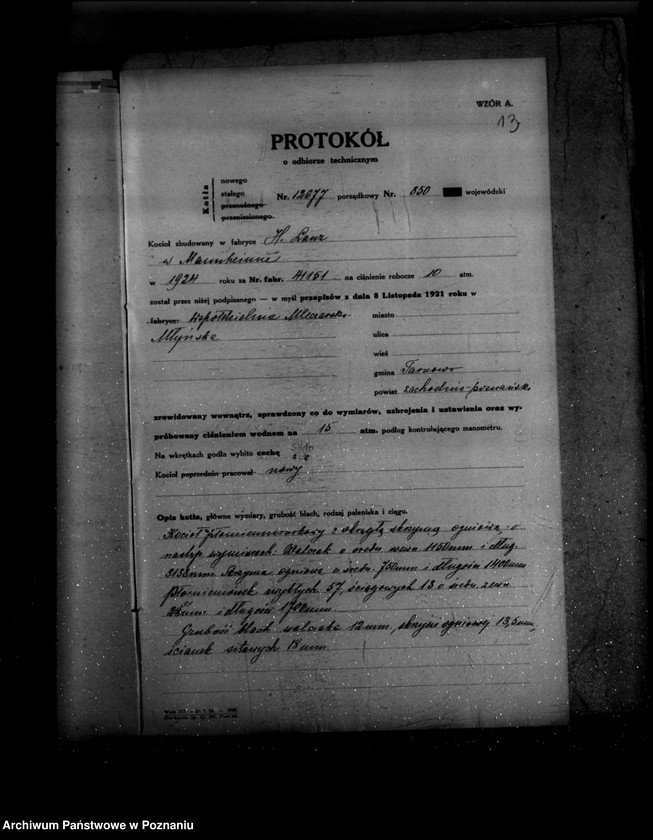 WZÓR A.
13
PROTOKÓŁ
o odbiorze technicznym
Kotła
nowego
stałego
przenośnego
przeniesionego
Nr. 12677 porządkowy Nr. 850 wojewódzki
Kocioł zbudowany w fabryce H. Lanz
w Mannheimie
w 1924 roku za Nr. fabr. 41151 na ciśnienie robocze 10 atm.
został przez niżej podpisanego — w myśl przepisów z dnia 8 Listopada 1921 roku w
fabryce: Współdzielnia Mleczarsko
Młyńska
miasto
ulica
wieś
gmina Tarnowo
powiat zachodnio-poznański
zrewidowany wewnątrz, sprawdzony co do wymiarów, uzbrojenia i ustawienia oraz wy-
próbowany ciśnieniem wodnem na 15 atm. podług kontrolującego manometru.
Na wkrętkach godła wybito cechę
Kocioł poprzednio pracował nowy
Opis kotła, główne wymiary, grubość blach, rodzaj paleniska i ciągu.
Kocioł płomieniorurkowy z okrągłą skrzynią ogniową o
następ. wymiarach: Walczak o średn. wewn. 1150 mm i dług.
3138 mm. Skrzynia ogniowa o średn. 750 mm i długości 1400 mm
płomieniówek zwykłych 57, ściągowych 13 o średn. zewn.
i długości 1700 mm.
Grubość blach walczaka 12 mm, skrzyni ogniowej 13,5 mm,
ścianek sitowych 18 mm.
Archiwum Państwowe w Poznaniu